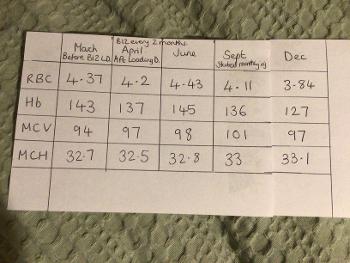 B12 every 2 months
Mach April June Sept Dec
Before B12 L.D. Aft Loading D.
RBC 4.37 4.2 4.43 4.11 3.84
Hb 143 137 145 136 127
MCV 94 97 98 101 97
MCH 32.7 32.5 32.8 33 33.1